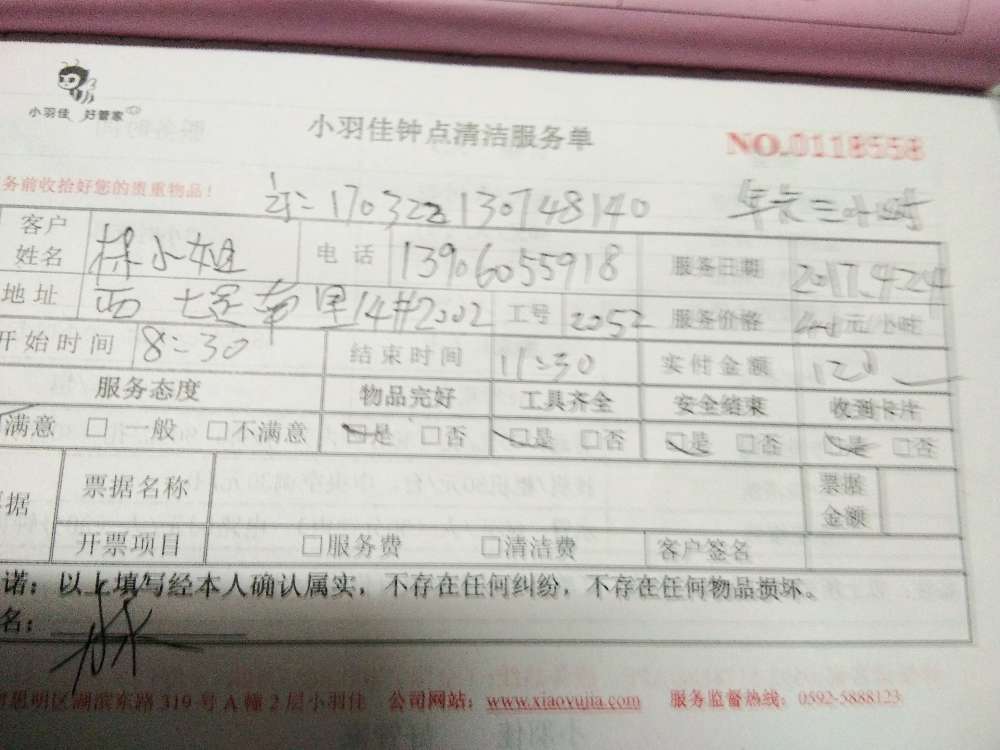 小羽佳 好管家
小羽佳钟点清洁服务单
NO.0118558
务前收拾好您的贵重物品!
170322130748140 年卡三小时
客户姓名 林小姐 电话 13906055918 服务日期 2017.4.24
地址 西 堤南里14#2002 工号 2052 服务价格 元/小时
开始时间 8:30 结束时间 11:30 实付金额 120
服务态度 物品完好 工具齐全 安全结束 收到卡片
满意 □ 一般 □不满意 □是 □否 □是 □否 □是 □否 □是 □否
据 票据名称 票据金额
开票项目 □服务费 □清洁费 客户签名
诺:以上填写经本人确认属实,不存在任何纠纷,不存在任何物品损坏。
名: 林
思明区湖滨东路319号A幢2层小羽佳 公司网站:www.xiaoyujia.com 服务监督热线:0592-5888123